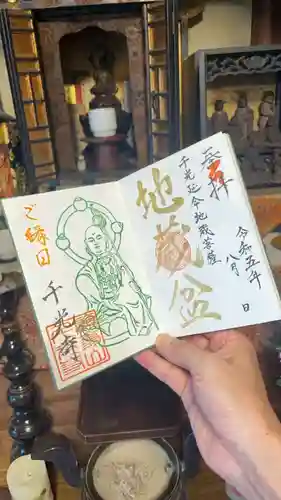 奉拝
千光延命地蔵菩薩
地蔵盆
令和五年
八月 日
ご縁日
千光寺